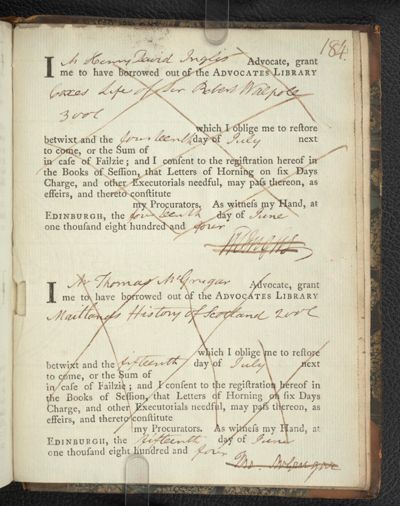 184.
I Mr Henry David Inglis Advocate, grant
me to have borrowed out of the ADVOCATES LIBRARY
Coxes Life of Sir Robert Walpole
3 voll
which I oblige me to reſtore
betwixt and the fourteenth day of July next
to come, or the Sum of
in caſe of Failzie; and I conſent to the regiſtration hereof in
the Books of Seſſion, that Letters of Horning on ſix Days
Charge, and other Executorials needful, may paſs thereon, as
effeirs, and thereto conſtitute
my Procurators. As witneſs my Hand, at
EDINBURGH, the fourteenth day of June
one thouſand eight hundred and four
I Mr Thomas McGrugar Advocate, grant
me to have borrowed out of the ADVOCATES LIBRARY
Maitlands History of Scotland 2 voll
which I oblige me to reſtore
betwixt and the fifteenth day of July next
to come, or the Sum of
in caſe of Failzie; and I conſent to the regiſtration hereof in
the Books of Seſſion, that Letters of Horning on ſix Days
Charge, and other Executorials needful, may paſs thereon, as
effeirs, and thereto conſtitute
my Procurators. As witneſs my Hand, at
EDINBURGH, the fifteenth day of June
one thouſand eight hundred and four